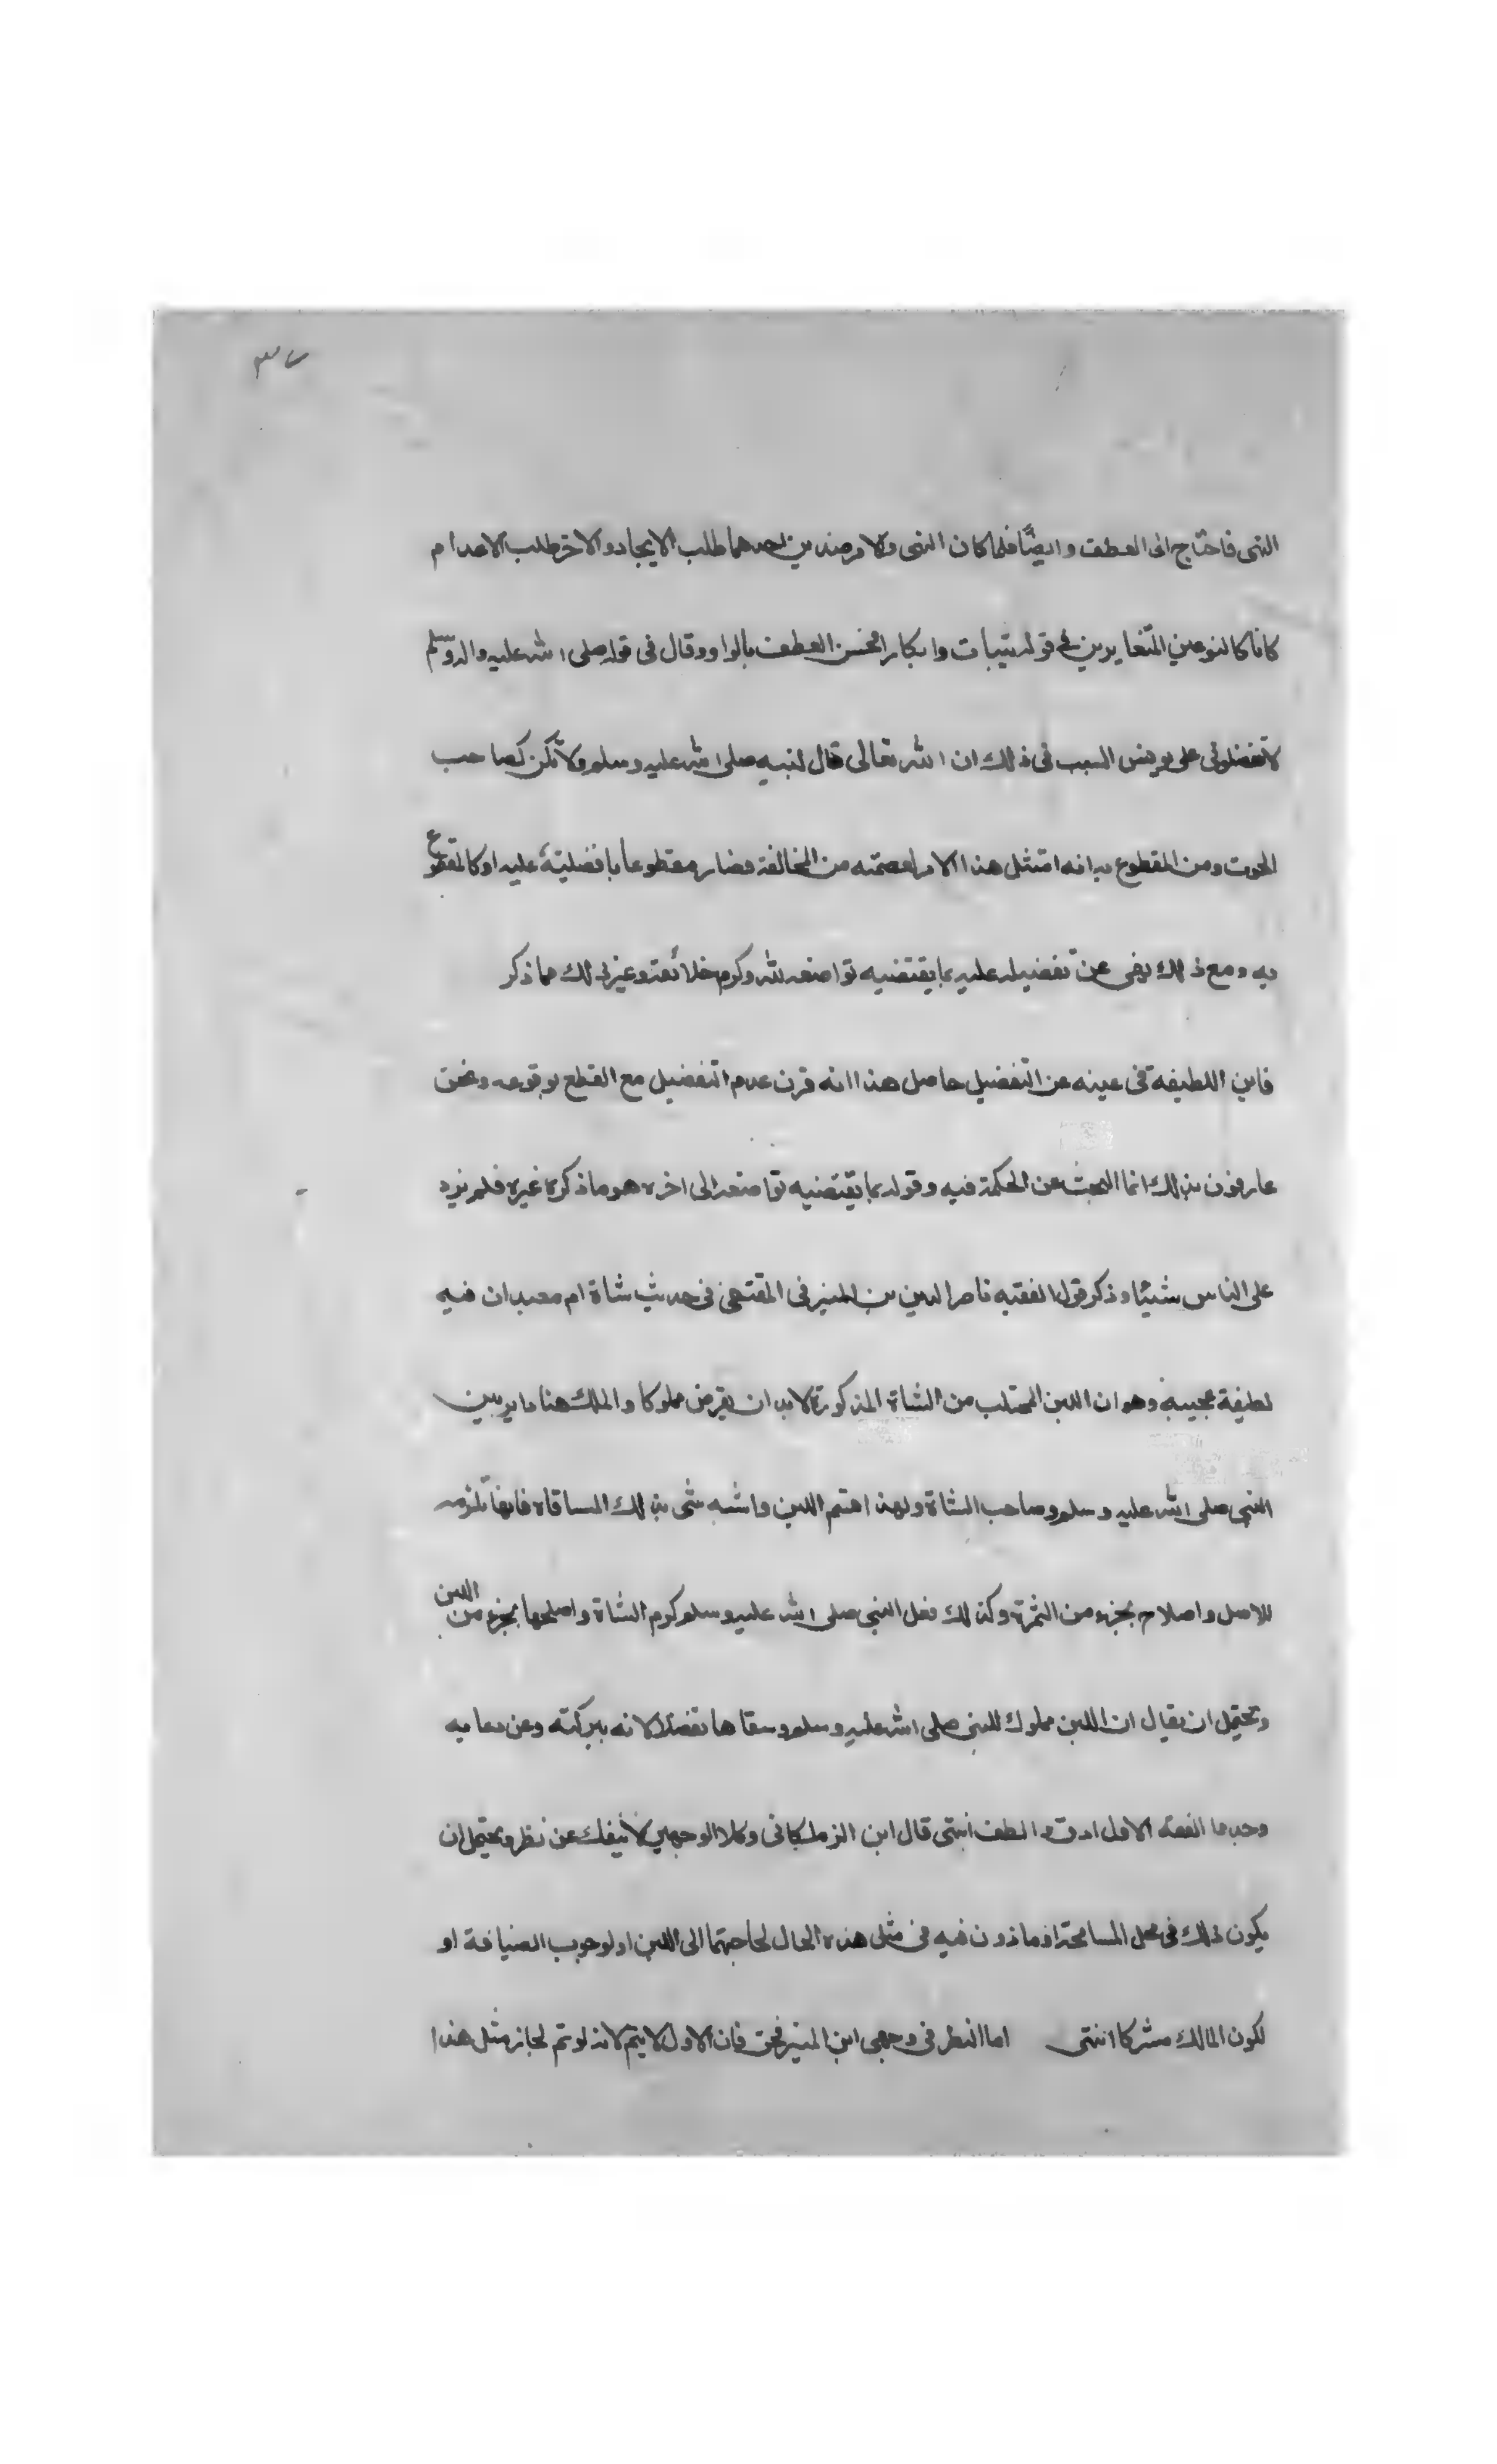 ٣٧
النهى فاحتاج الى العطف وايضًا فلما كان النهى والامر ضدين احدهما طلب الايجاد والاخر طلب الاعدام
كانا كالنوعين المتغايرين في قوله ثيبات وابكارا فحسن العطف بالواو وقال فى قوله صلى الله عليه واله وسلم
لا تفضلونى على يونس السبب فى ذلك ان الله تعالى قال لنبيه صلى الله عليه وسلم ولا تكن كصاحب
الحوت ومن المقطوع به انه امتثل هذا الامر لعصمته من المخالفة فصار مقطوعا بافضليته عليه او كالمقطوع
به ومع ذلك نهى عن تفضيله عليه بما يقتضيه تواضعه لله وكرم خلائقه وغير ذلك مما ذكر
فاين اللطيفة فى عينه عن التفضيل حاصل هذا انه قرن عدم التفضيل مع القطع بوقوعه ونحن
عارفون بذلك انما البحث عن الحكمة فيه وقوله بما يقتضيه تواضعه الى اخره هو ما ذكره غيره فلم يزد
على الناس شيئا وذكر قول الفقيه ناصر الدين بن المنير فى المقتفى فى حديث شاة ام معبد ان فيه
لطيفة عجيبة وهو ان اللبن المحتلب من الشاة المذكورة لا بد ان يفرض مملوكا والملك هنا داير بين
النبى صلى الله عليه وسلم وصاحب الشاة ولهذا اقتسم اللبن واشبه شى بذلك المساقاه فانها تلزمه
للاصل واصلاح بجزء من الثمرة وكذلك فعل النبى صلى الله عليه وسلم كرم الشاة واصلحها بجزء من اللبن
ويحتمل ان يقال ان اللبن مملوك للنبى صلى الله عليه وسلم وسقاها تفضلا لانه ببركته وعن دعايه
وحد ما الفقه الاول ادق والطف انتهى قال ابن الزملكانى وكلا الوجهين لا ينفك عن نظر ويحتمل ان
يكون ذلك فى محل المسامحة اذ ماذون فيه فى مثل هذه الحال لحاجتهما الى اللبن او لوجوب الضيافة او
لكون المالك مشركا انتهى اما النظر فى وجهى ابن المنير فحق فان الاول لا يتم لانه لو تم لجاز مثل هذا